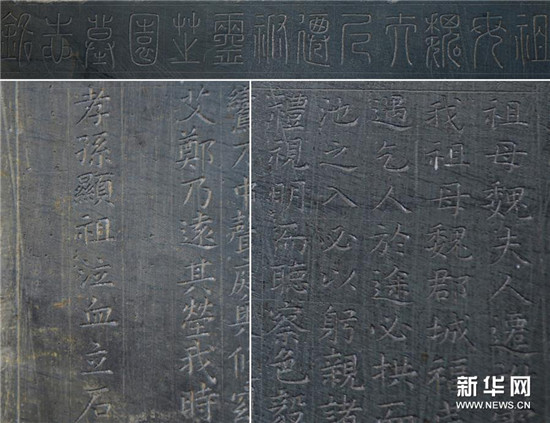 祖母魏夫人遷祔靈芷園墓志銘
祖母魏夫人遷
我祖母魏郡城
遇乞人於途必拱
池之入必以躬親諸
禮視明而聽察色毅
艾鄭乃遠其塋我時
孝孫顯祖泣血立石
新华网
WWW.NEWS.CN